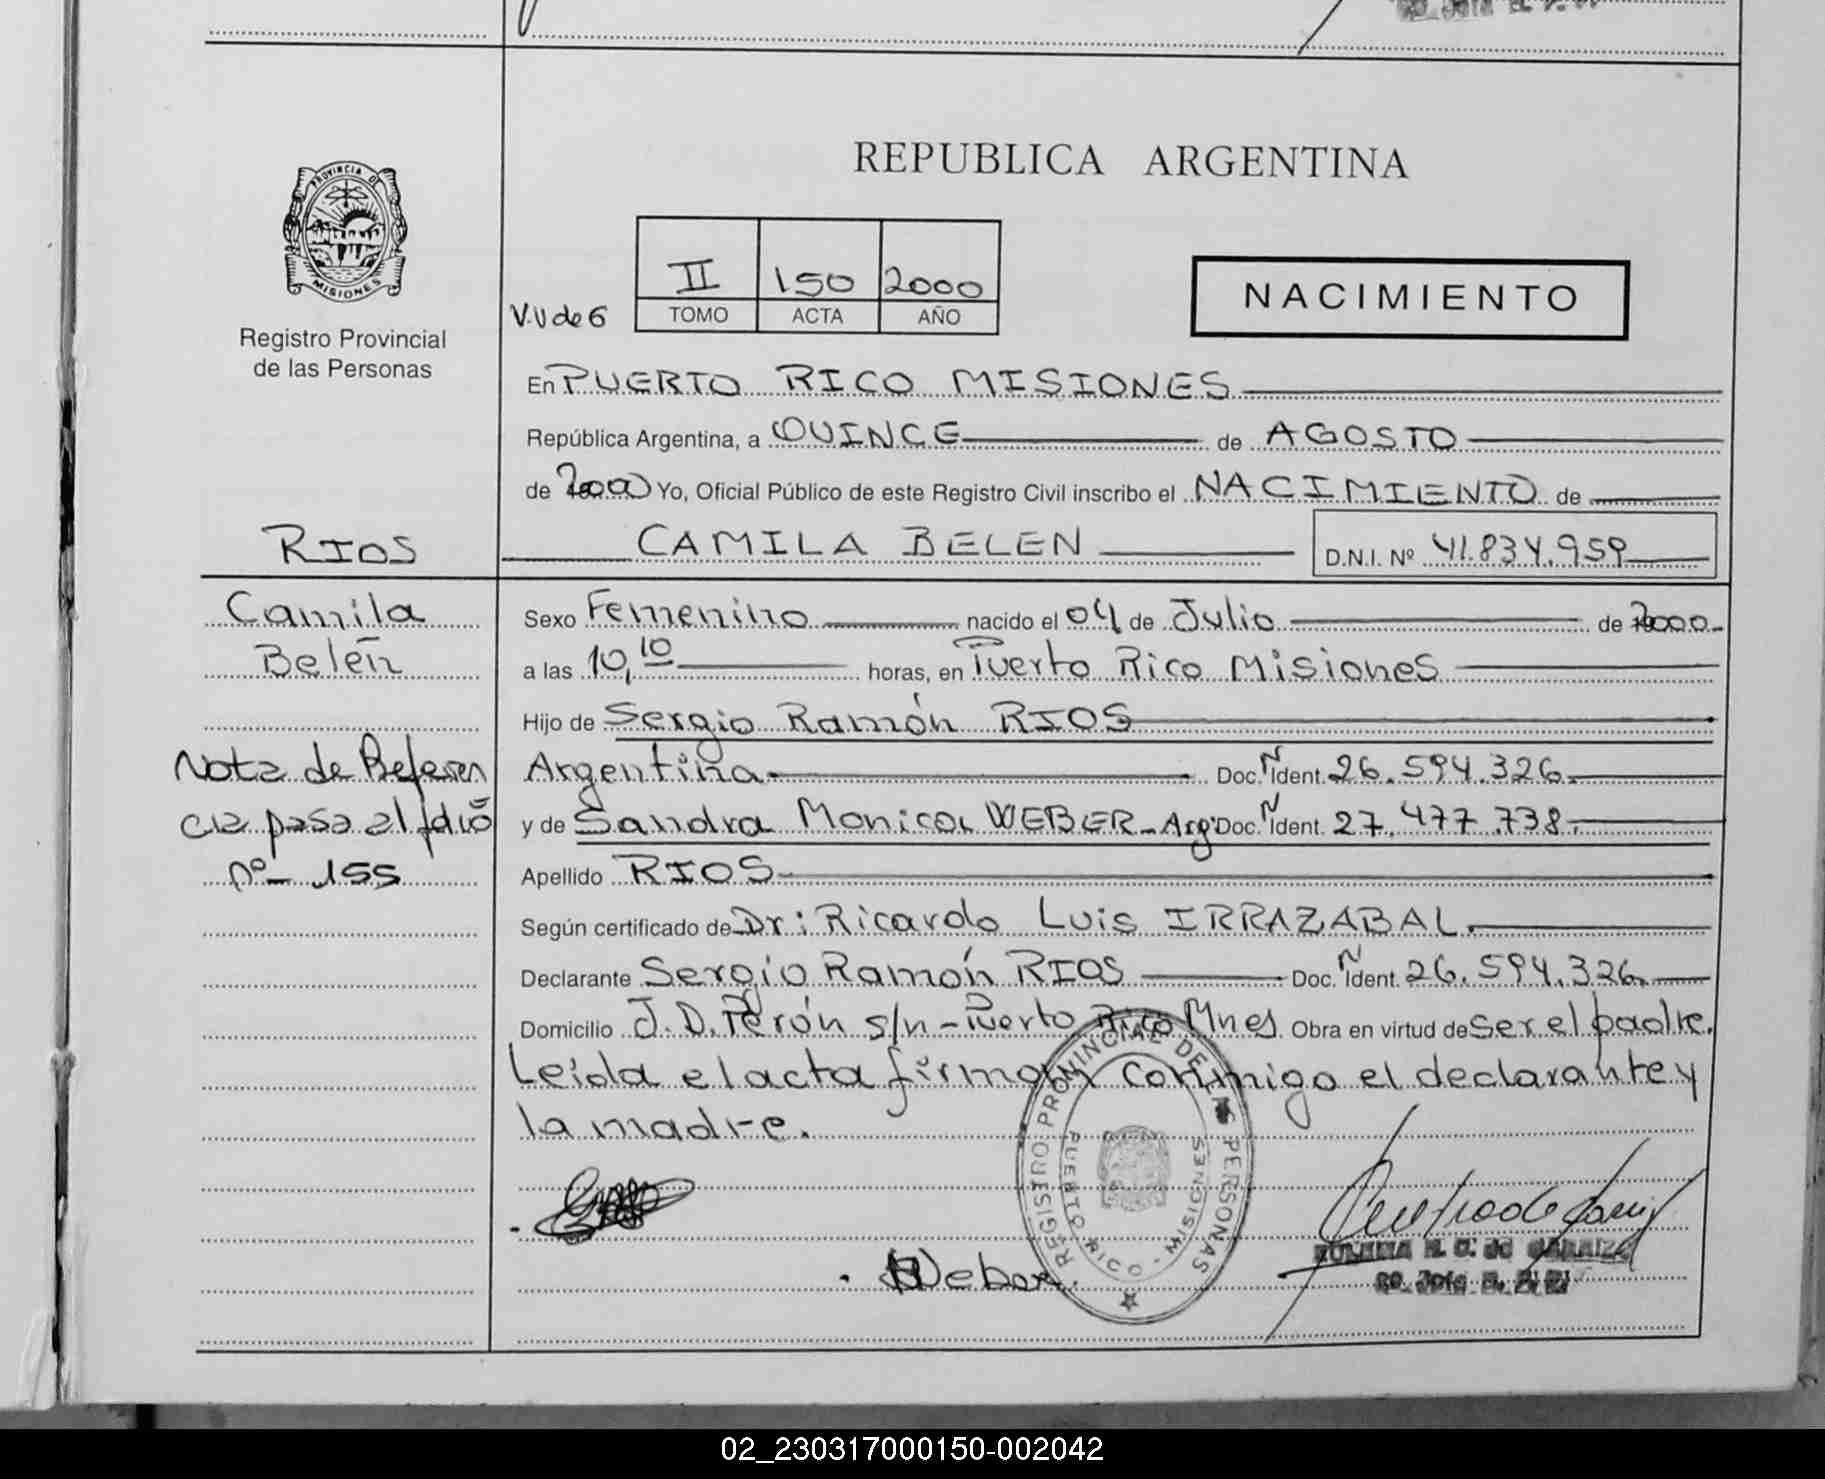 REPUBLICA ARGENTINA
PROVINCIA DE
MISIONES
Registro Provincial
de las Personas
II 150 2000
TOMO ACTA AÑO
V.U de 6
NACIMIENTO
En PUERTO RICO MISIONES
República Argentina, a QUINCE de AGOSTO
de 2000 Yo, Oficial Público de este Registro Civil inscribo el NACIMIENTO de
RIOS
CAMILA BELEN D.N.I. Nº 41.834.959
Camila
Belén
Nota de Referen
cia pasa al folio
nº - 155
Sexo Femenino nacido el 04 de Julio de 2000-
a las 10,10 horas, en Puerto Rico Misiones
Hijo de Sergio Ramón RIOS
Argentina Doc. Nº Ident. 26.594.326.
y de Sandra Monica WEBER - Arg. Doc. Nº Ident. 27.477.738.
Apellido RIOS
Según certificado de Dr: Ricardo Luis IRRAZABAL.
Declarante Sergio Ramón RIOS Doc. Nº Ident. 26.594.326.
Domicilio J.D. Perón s/n - Puerto Rico Mnes. Obra en virtud de ser el padre.
Leida el acta firman conmigo el declarante y
la madre.
REGISTRO PROVINCIAL DE LAS PERSONAS
PUERTO RICO - MISIONES
Weber.
02_230317000150-002042